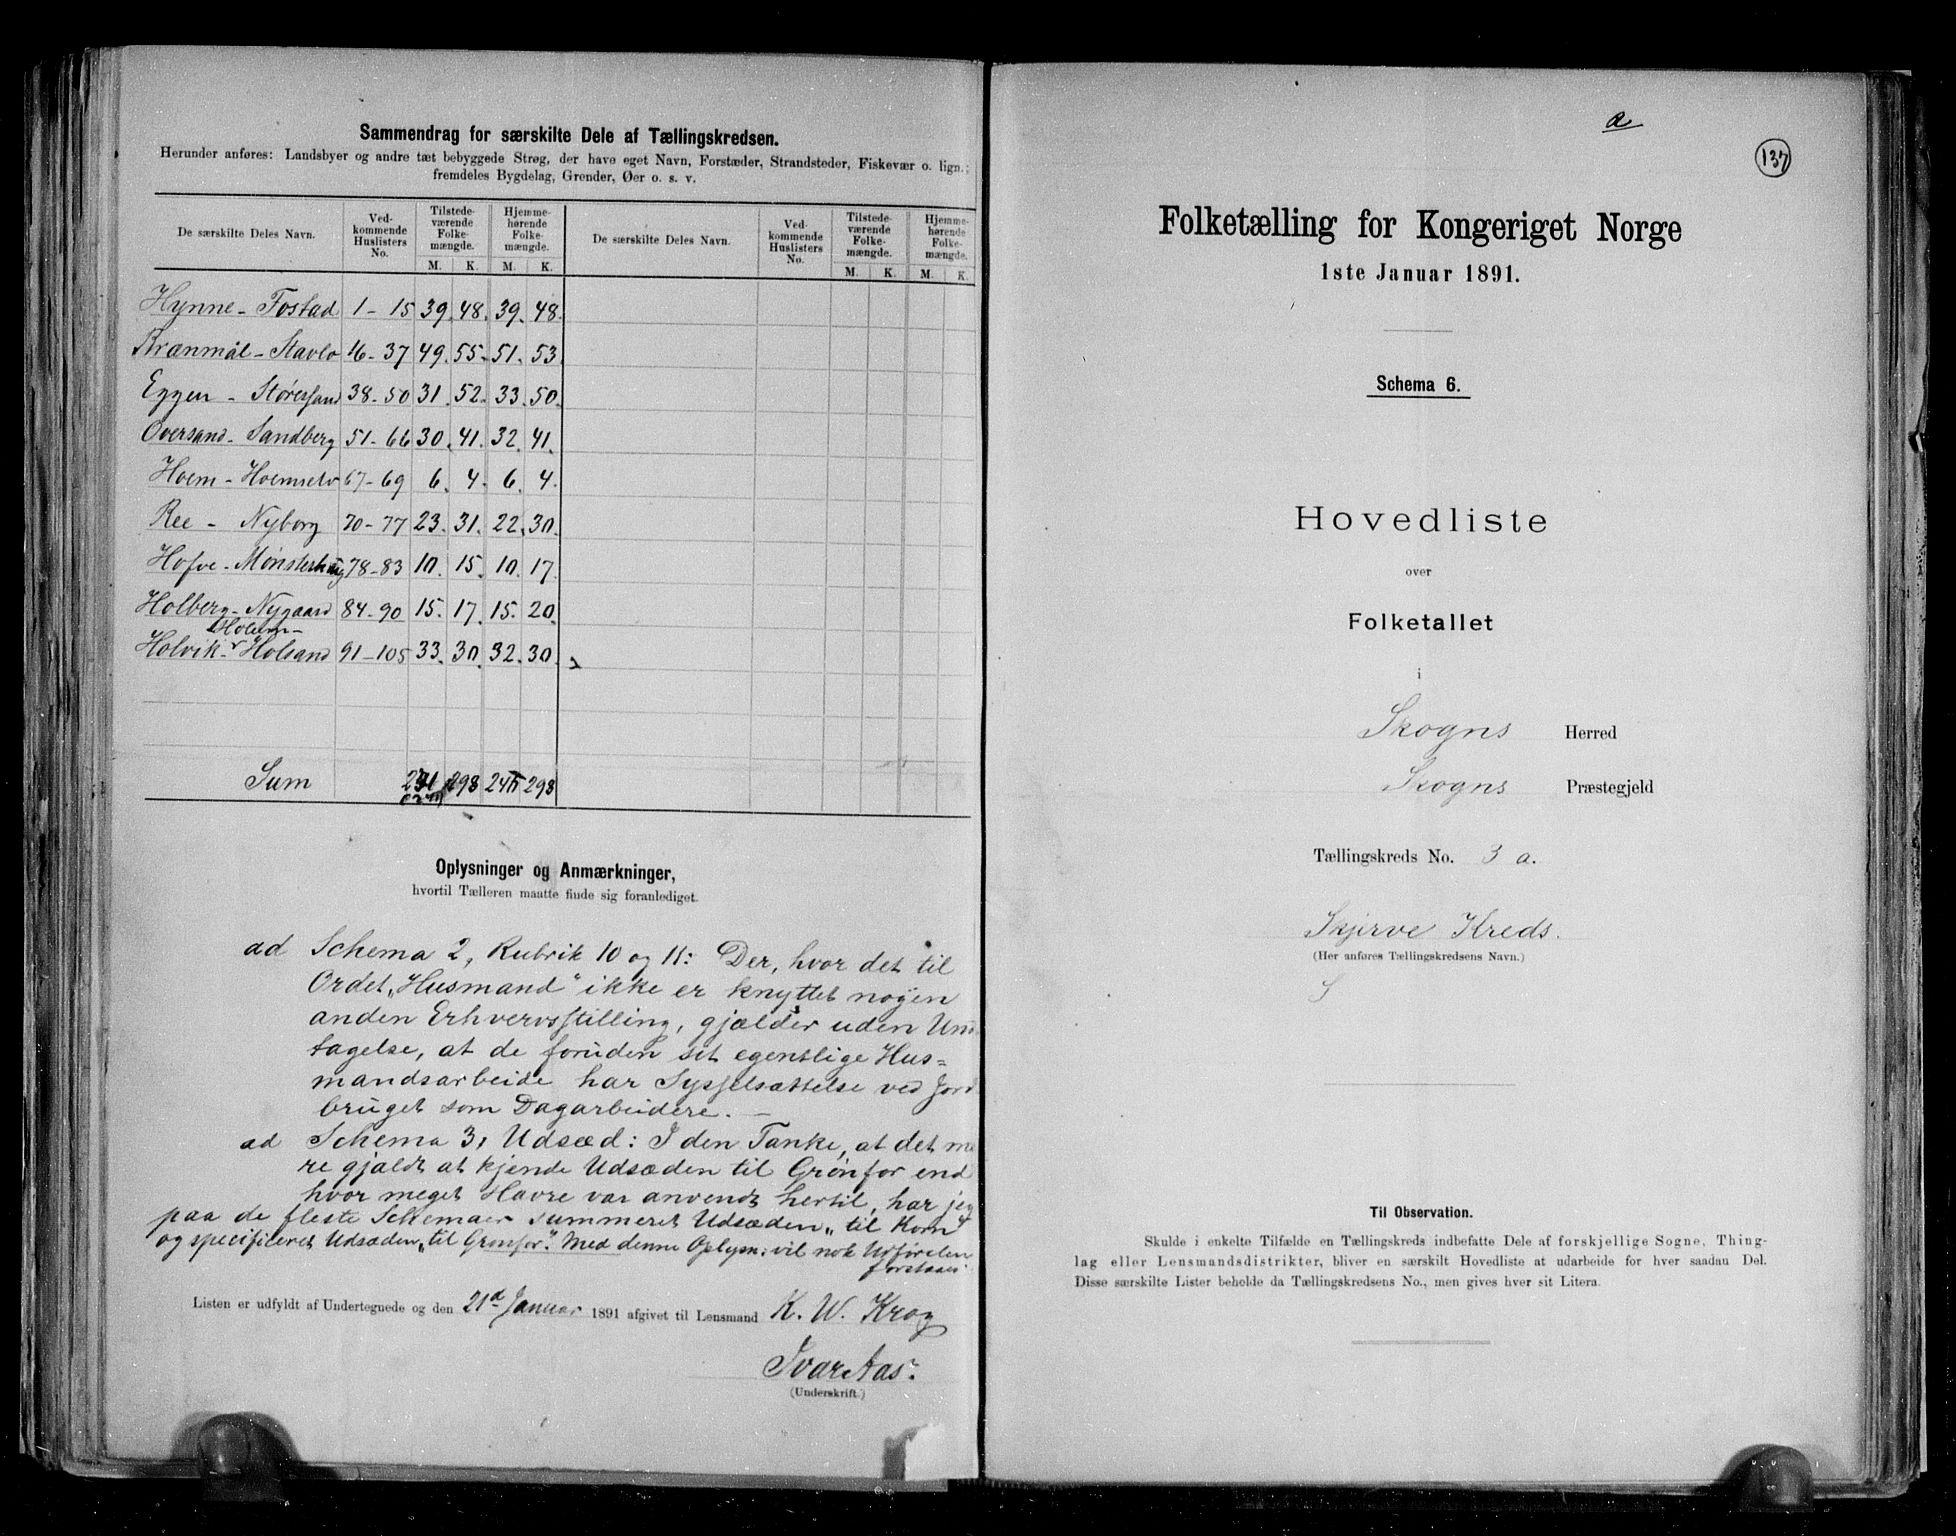 Sammendrag for særskilte Dele af Tællingskredsen.
Herunder anføres: Landsbyer og andre tæt bebyggede Strøg, der have eget Navn, Forstæder, Strandsteder, Fiskevær o. lign.;
fremdeles Bygdelag, Grender, Øer o. s. v.
De særskilte Deles Navn. Ved-kommende Huslisters No. Tilstede-værende Folke-mængde. Hjemme-hørende Folke-mængde. De særskilte Deles Navn. Ved-kommende Huslisters No. Tilstede-værende Folke-mængde. Hjemme-hørende Folke-mængde.
M. K. M. K. M. K. M. K.
Hynne - Fostad 1 - 15 39. 48. 39. 48.
Brænmål - Stavlo 16 - 37 49. 55. 51. 53.
Eggen - Størersand 38 - 50 31. 52. 33. 50.
Oversand - Sandberg 51 - 66 30. 41. 32. 41.
Hoem - Hoemselv 67 - 69 6. 4. 6. 4.
Ree - Nyborg 70 - 77 23. 31. 22. 30.
Hofve - Mønsterhaug 78 - 83 10. 15. 10. 17.
Holberg - Nygaard 84 - 90 15. 17. 15. 20.
Holum -
Holvik - Holsand 91 - 105 33. 30. 32. 30.
Sum 298 298
Oplysninger og Anmærkninger,
hvortil Tælleren maatte finde sig foranlediget.
ad Schema 2, Rubrik 10 og 11: Der, hvor det til
Ordet „Husmand" ikke er knyttet nogen
anden Erhvervsstilling, gjælder uden Und
tagelse, at de foruden sit egentlige Hus=
mandsarbeide har Sysselsættelse ved Jord
bruget som Dagarbeidere. —
ad Schema 3, Udsæd: I den Tanke, at det me
re gjaldt at kjende Udsæden til Grønfor end
hvor meget Havre var anvendt hertil, har jeg
paa de fleste Schemaer summeret Udsæden „til Korn"
og specificeret Udsæden „til Grønfor". Med denne Oplysn: vil nok Udførelen
forstaaes.
Listen er udfyldt af Undertegnede og den 21d Januar 1891 afgivet til Lensmand K. W. Krog
Ivar Aas.
(Underskrift.)
a
137
Folketælling for Kongeriget Norge
1ste Januar 1891.
Schema 6.
Hovedliste
over
Folketallet
i
Skogns Herred
Skogns Præstegjeld
Tællingskreds No. 3 a.
Skjerve Kreds.
(Her anføres Tællingskredsens Navn.)
S
Til Observation.
Skulde i enkelte Tilfælde en Tællingskreds indbefatte Dele af forskjellige Sogne, Thing-
lag eller Lensmandsdistrikter, bliver en særskilt Hovedliste at udarbeide for hver saadan Del.
Disse særskilte Lister beholde da Tællingskredsens No., men gives hver sit Litera.